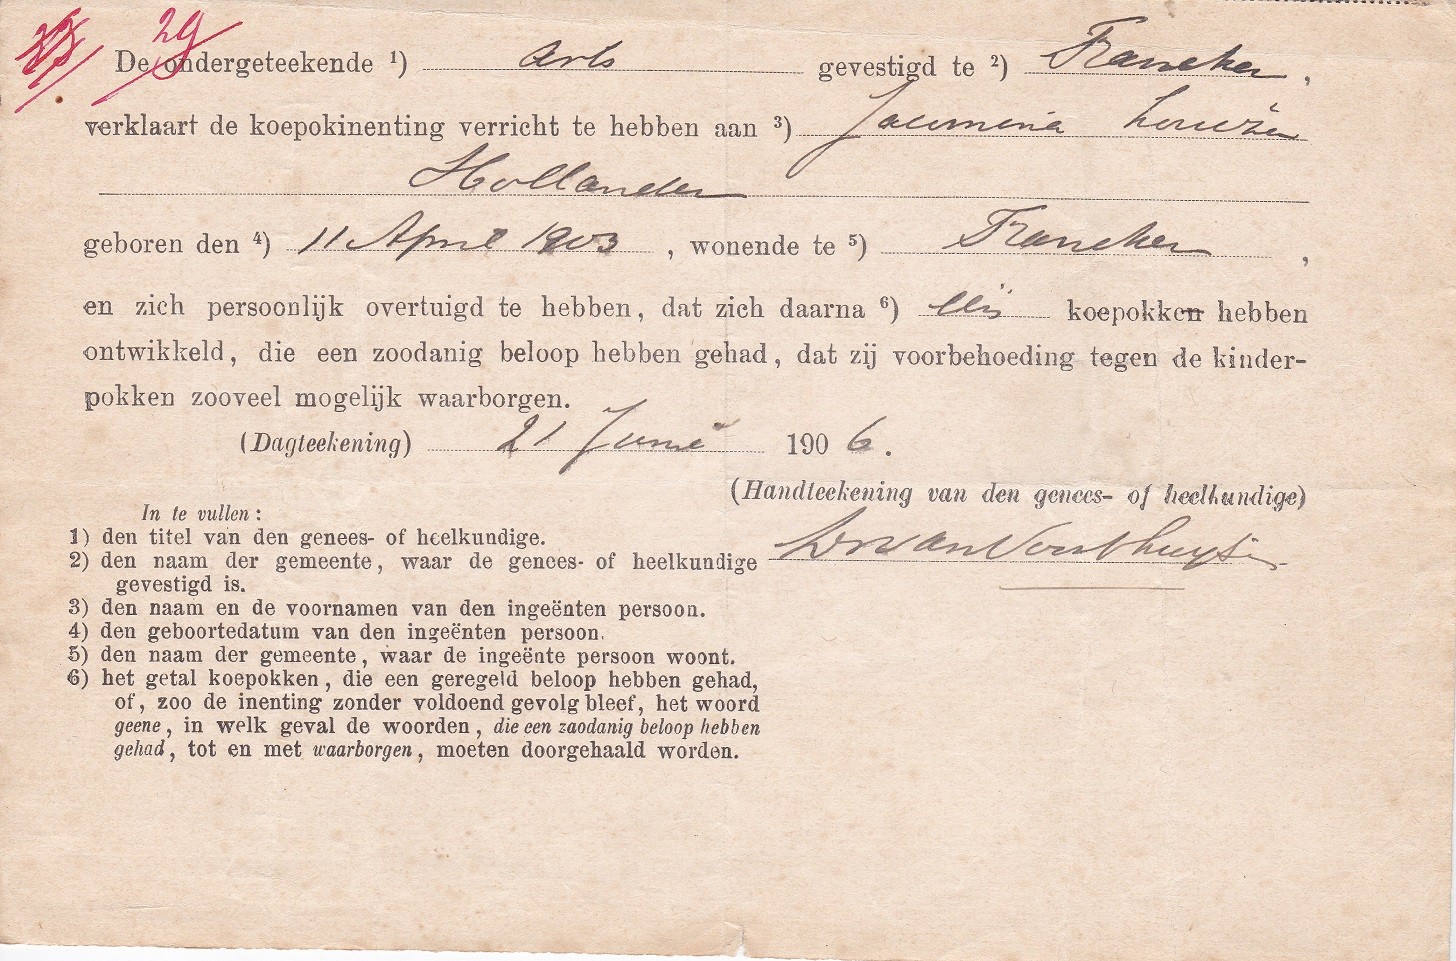 29
De ondergeteekende ¹) Arts gevestigd te ²) Franeker,
verklaart de koepokinenting verricht te hebben aan ³) Jacomina Louize
Hollander
geboren den ⁴) 11 April 1903, wonende te ⁵) Franeker,
en zich persoonlijk overtuigd te hebben, dat zich daarna ⁶) koepokken hebben
ontwikkeld, die een zoodanig beloop hebben gehad, dat zij voorbehoeding tegen de kinder-
pokken zooveel mogelijk waarborgen.
(Dagteekening) 21 Juni 1906.
(Handteekening van den genees- of heelkundige)
In te vullen:
1) den titel van den genees- of heelkundige.
2) den naam der gemeente, waar de genees- of heelkundige
gevestigd is.
3) den naam en de voornamen van den ingeënten persoon.
4) den geboortedatum van den ingeënten persoon.
5) den naam der gemeente, waar de ingeënte persoon woont.
6) het getal koepokken, die een geregeld beloop hebben gehad,
of, zoo de inenting zonder voldoend gevolg bleef, het woord
geene, in welk geval de woorden, die een zaodanig beloop hebben
gehad, tot en met waarborgen, moeten doorgehaald worden.